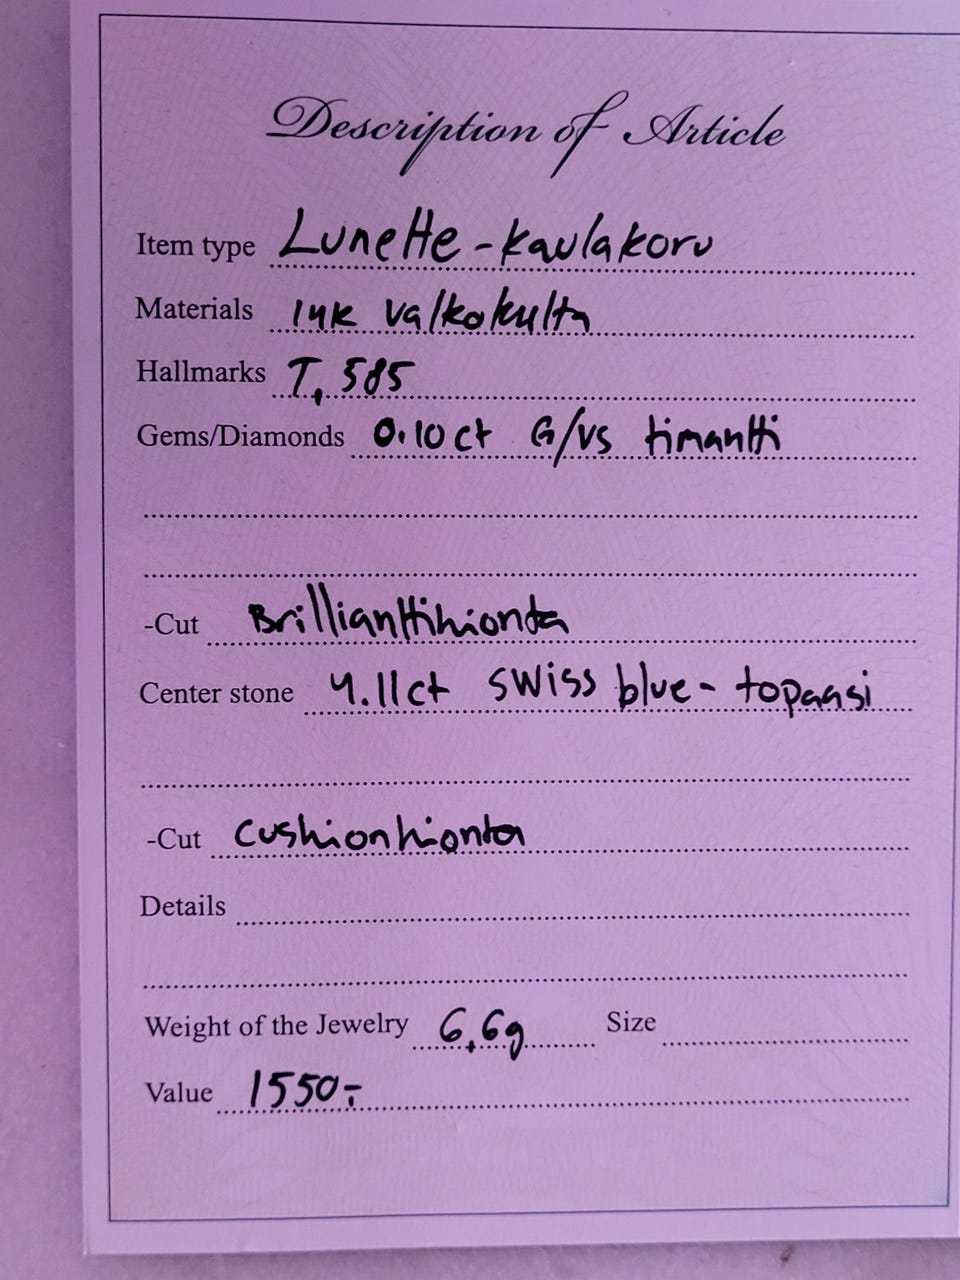 Description of Article
Item type Lunette-kaulakoru
Materials 14K valkokulta
Hallmarks T, 585
Gems/Diamonds 0.10ct G/VS timantti
-Cut Brillianttihionta
Center stone 4.11ct swiss blue-topaasi
-Cut Cushionhionta
Details
Weight of the Jewelry 6,6g Size
Value 1550:-